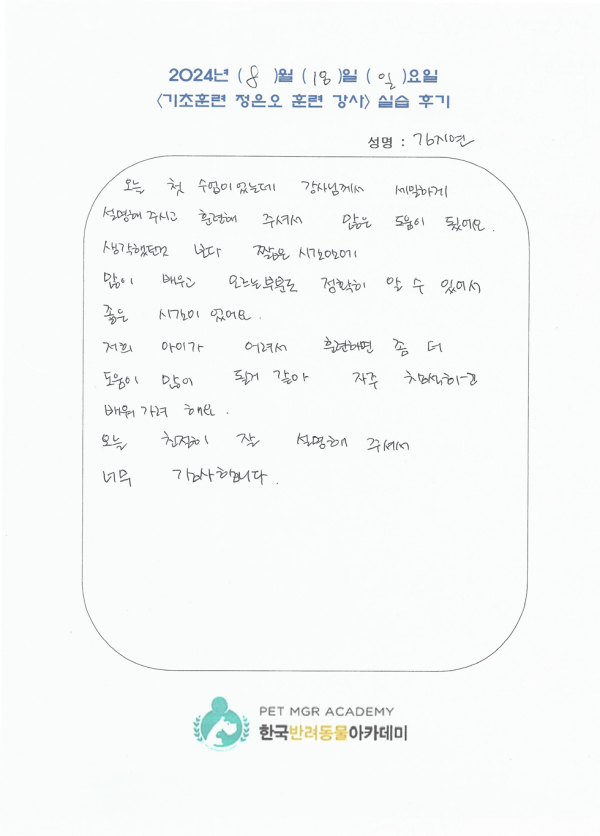 2024년 ( 8 )월 ( 18 )일 ( 일 )요일
<기초훈련 정은오 훈련 강사> 실습 후기
성명 : 김지연
오늘 첫 수업이 있는데 강사님께서 세밀하게
설명해 주시고 훈련해 주셔서 많은 도움이 됬어요.
생각했던 보다 짧은 시간이에
많이 배우고 모르는부분도 정확히 알 수 있어서
좋은 시간이 었어요.
저희 아이가 어려서 훈련하면 좀 더
도움이 많이 될거 같아 자주 참석하고
배워 가려 해요.
오늘 친절히 잘 설명해 주셔서
너무 감사합니다.
PET MGR ACADEMY
한국반려동물아카데미